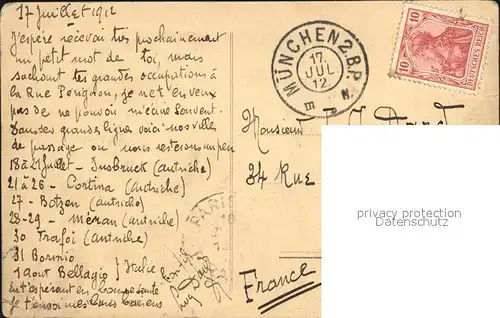 17 Juillet 1912
J'espère recevoir très prochainement
un petit mot de toi, mais
sachant tes grandes occupations à
la Rue Perignon, je ne t'en veux
pas de ne pouvoir m'écrire souvent.
Dans les grandes lignes voici nos villes
de passage où nous resterons un peu
18 à 21 Juillet - Insbruck (autriche)
21 à 26 - Cortina (autriche)
27 - Botzen (autriche)
28-29 - Méran (autriche)
30 Trafoi (autriche)
31 Bormio
1 aout Bellagio } Italie
en t'espérant en bonne santé
je t'envoie mes bons baisers
MÜNCHEN 2. B.P.
17.
JUL
12.
III N.
10 10
DEUTSCHES REICH
Monsieur
34 Rue
France
privacy protection
Datenschutz